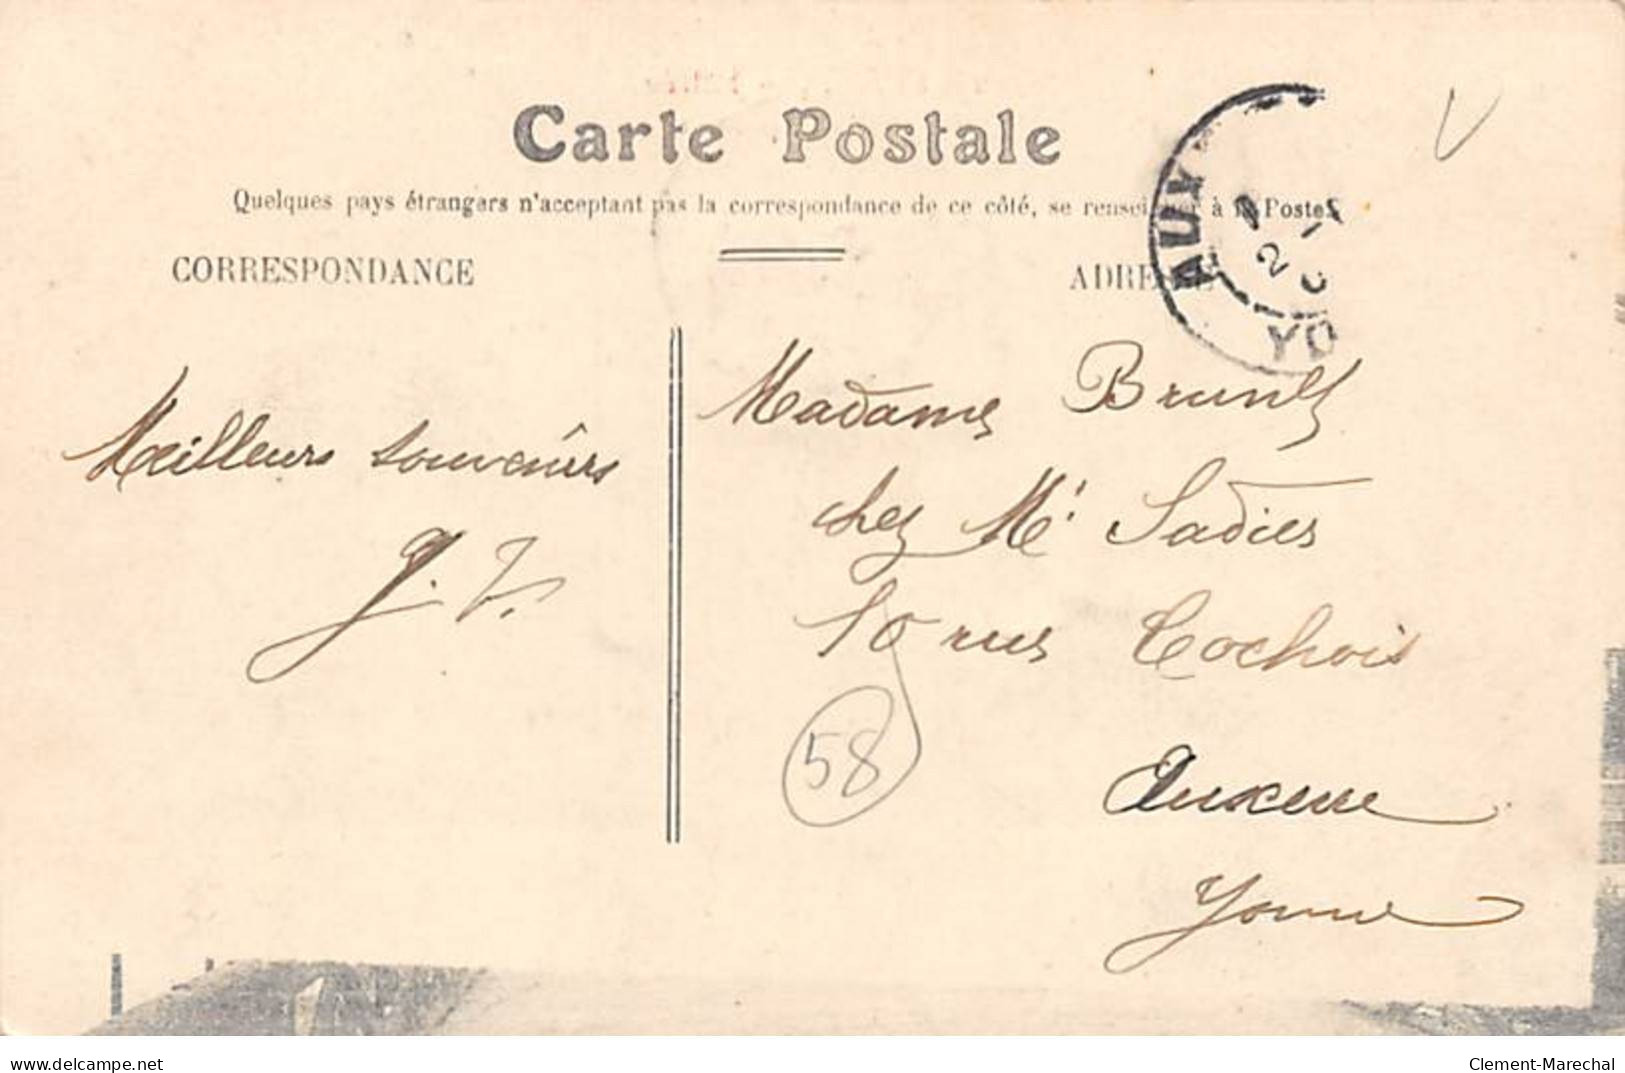 Carte Postale
Quelques pays étrangers n'acceptant pas la correspondance de ce côté, se renseigner à la Poste
CORRESPONDANCE
ADRESSE
AUX
2
YO
V
Meilleurs souvenirs
J. V.
Madame
chez Mr
10 rue Cochois
Auxerre
Yonne
58
delcampe.net
Clement-Marechal